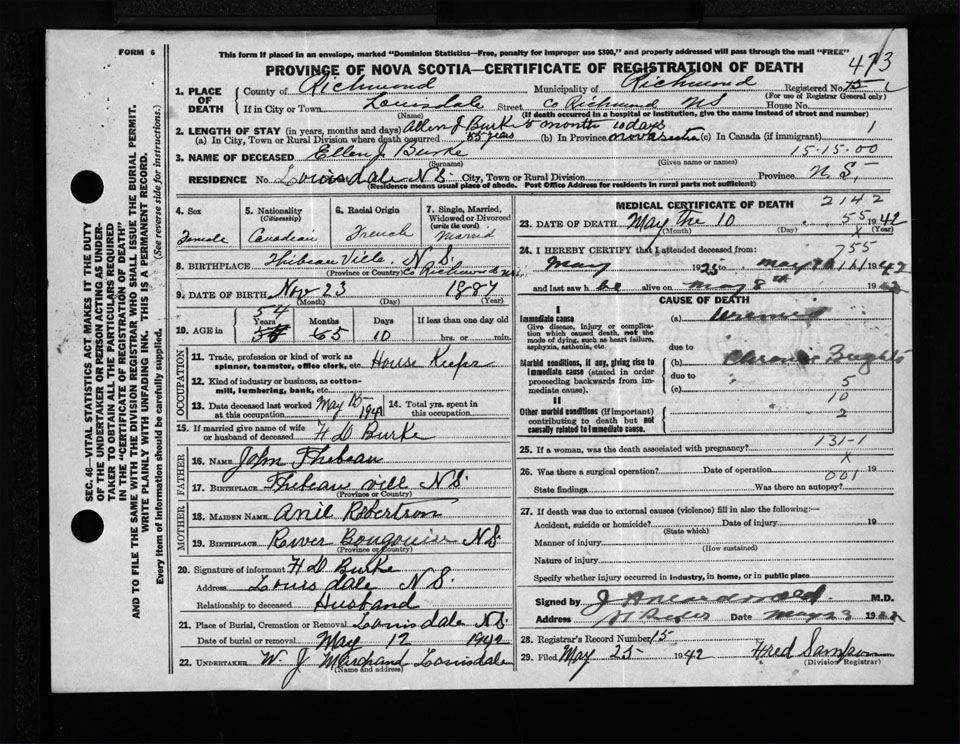 FORM 6
This form if placed in an envelope, marked "Dominion Statistics—Free, penalty for improper use $300," and properly addressed will pass through the mail "FREE"
473
PROVINCE OF NOVA SCOTIA—CERTIFICATE OF REGISTRATION OF DEATH
1. PLACE OF DEATH
County of Richmond Municipality of Richmond Registered No. 15
(For use of Registrar General only)
If in City or Town Louisdale Street Co Richmond NS House No.
(Name) (If death occurred in a hospital or institution, give the name instead of street and number)
2. LENGTH OF STAY (in years, months and days) Allen J Burke 5 month 10 days 1
(a) In City, Town or Rural Division where death occurred 55 years (b) In Province novascotia (c) In Canada (if immigrant)
3. NAME OF DECEASED Ellen J. Burke 15-15-00
(Surname) (Given name or names)
RESIDENCE No. Louisdale N S. City, Town or Rural Division Province N. S.
(Residence means usual place of abode. Post Office Address for residents in rural parts not sufficient)
4. Sex
Female
5. Nationality
(Citizenship)
Canadian
6. Racial Origin
French
7. Single, Married, Widowed or Divorced
(write the word)
Marrid
8. BIRTHPLACE Thibeau Ville. N. S.
(Province or Country) Co Richmond
9. DATE OF BIRTH Nov 23 1887
(Month) (Day) (Year)
54
10. AGE in Years Months Days If less than one day old
5 10 hrs. or min.
OCCUPATION
11. Trade, profession or kind of work as spinner, teamster, office clerk, etc. House Keeper
12. Kind of industry or business, as cotton-mill, lumbering, bank, etc.
13. Date deceased last worked at this occupation May 15 1941
14. Total yrs. spent in this occupation
15. If married give name of wife or husband of deceased H D Burke
FATHER
16. Name John Thibeau
17. Birthplace Thibeau vill N S.
(Province or Country)
MOTHER
18. Maiden Name Anil Robertson
19. Birthplace River Bougouise N S.
(Province or Country)
20. Signature of informant H D Burke
Address Louis dale N S.
Relationship to deceased Husband
21. Place of Burial, Cremation or Removal Louisdale N S.
Date of burial or removal May 12 1942
22. Undertaker W. J Marchand Louisdale
(Name and address)
MEDICAL CERTIFICATE OF DEATH
2142
23. DATE OF DEATH May the 10 55 1942
(Month) (Day) X (Year)
24. I HEREBY CERTIFY that I attended deceased from: 755
May 19 to May 1942
and last saw h alive on May 8th 19
CAUSE OF DEATH
I
Immediate cause
Give disease, injury or complication which caused death, not the mode of dying, such as heart failure, asphyxia, asthenia, etc.
(a) Uremia
due to
Morbid conditions, if any, giving rise to immediate cause (stated in order proceeding backwards from immediate cause).
(b) Chronic
due to 5
(c) 10
II
Other morbid conditions (if important) contributing to death but not causally related to immediate cause.
2
131-1
25. If a woman, was the death associated with pregnancy?
X
26. Was there a surgical operation? Date of operation 19
001
State findings Was there an autopsy?
27. If death was due to external causes (violence) fill in also the following:—
Accident, suicide or homicide? Date of injury 19
(State which)
Manner of injury
(How sustained)
Nature of injury
Specify whether injury occurred in industry, in home, or in public place
Signed by M.D.
Address Date May 23 19
28. Registrar's Record Number 15
29. Filed May 25 1942 Fred Sampson
(Division Registrar)
SEC. 46—VITAL STATISTICS ACT MAKES IT THE DUTY
OF THE UNDERTAKER OR PERSON ACTING AS UNDER-
TAKER TO OBTAIN ALL THE PARTICULARS REQUIRED
IN THE "CERTIFICATE OF REGISTRATION OF DEATH"
AND TO FILE THE SAME WITH THE DIVISION REGISTRAR WHO SHALL ISSUE THE BURIAL PERMIT.
WRITE PLAINLY WITH UNFADING INK. THIS IS A PERMANENT RECORD.
Every item of information should be carefully supplied. (See reverse side for instructions.)